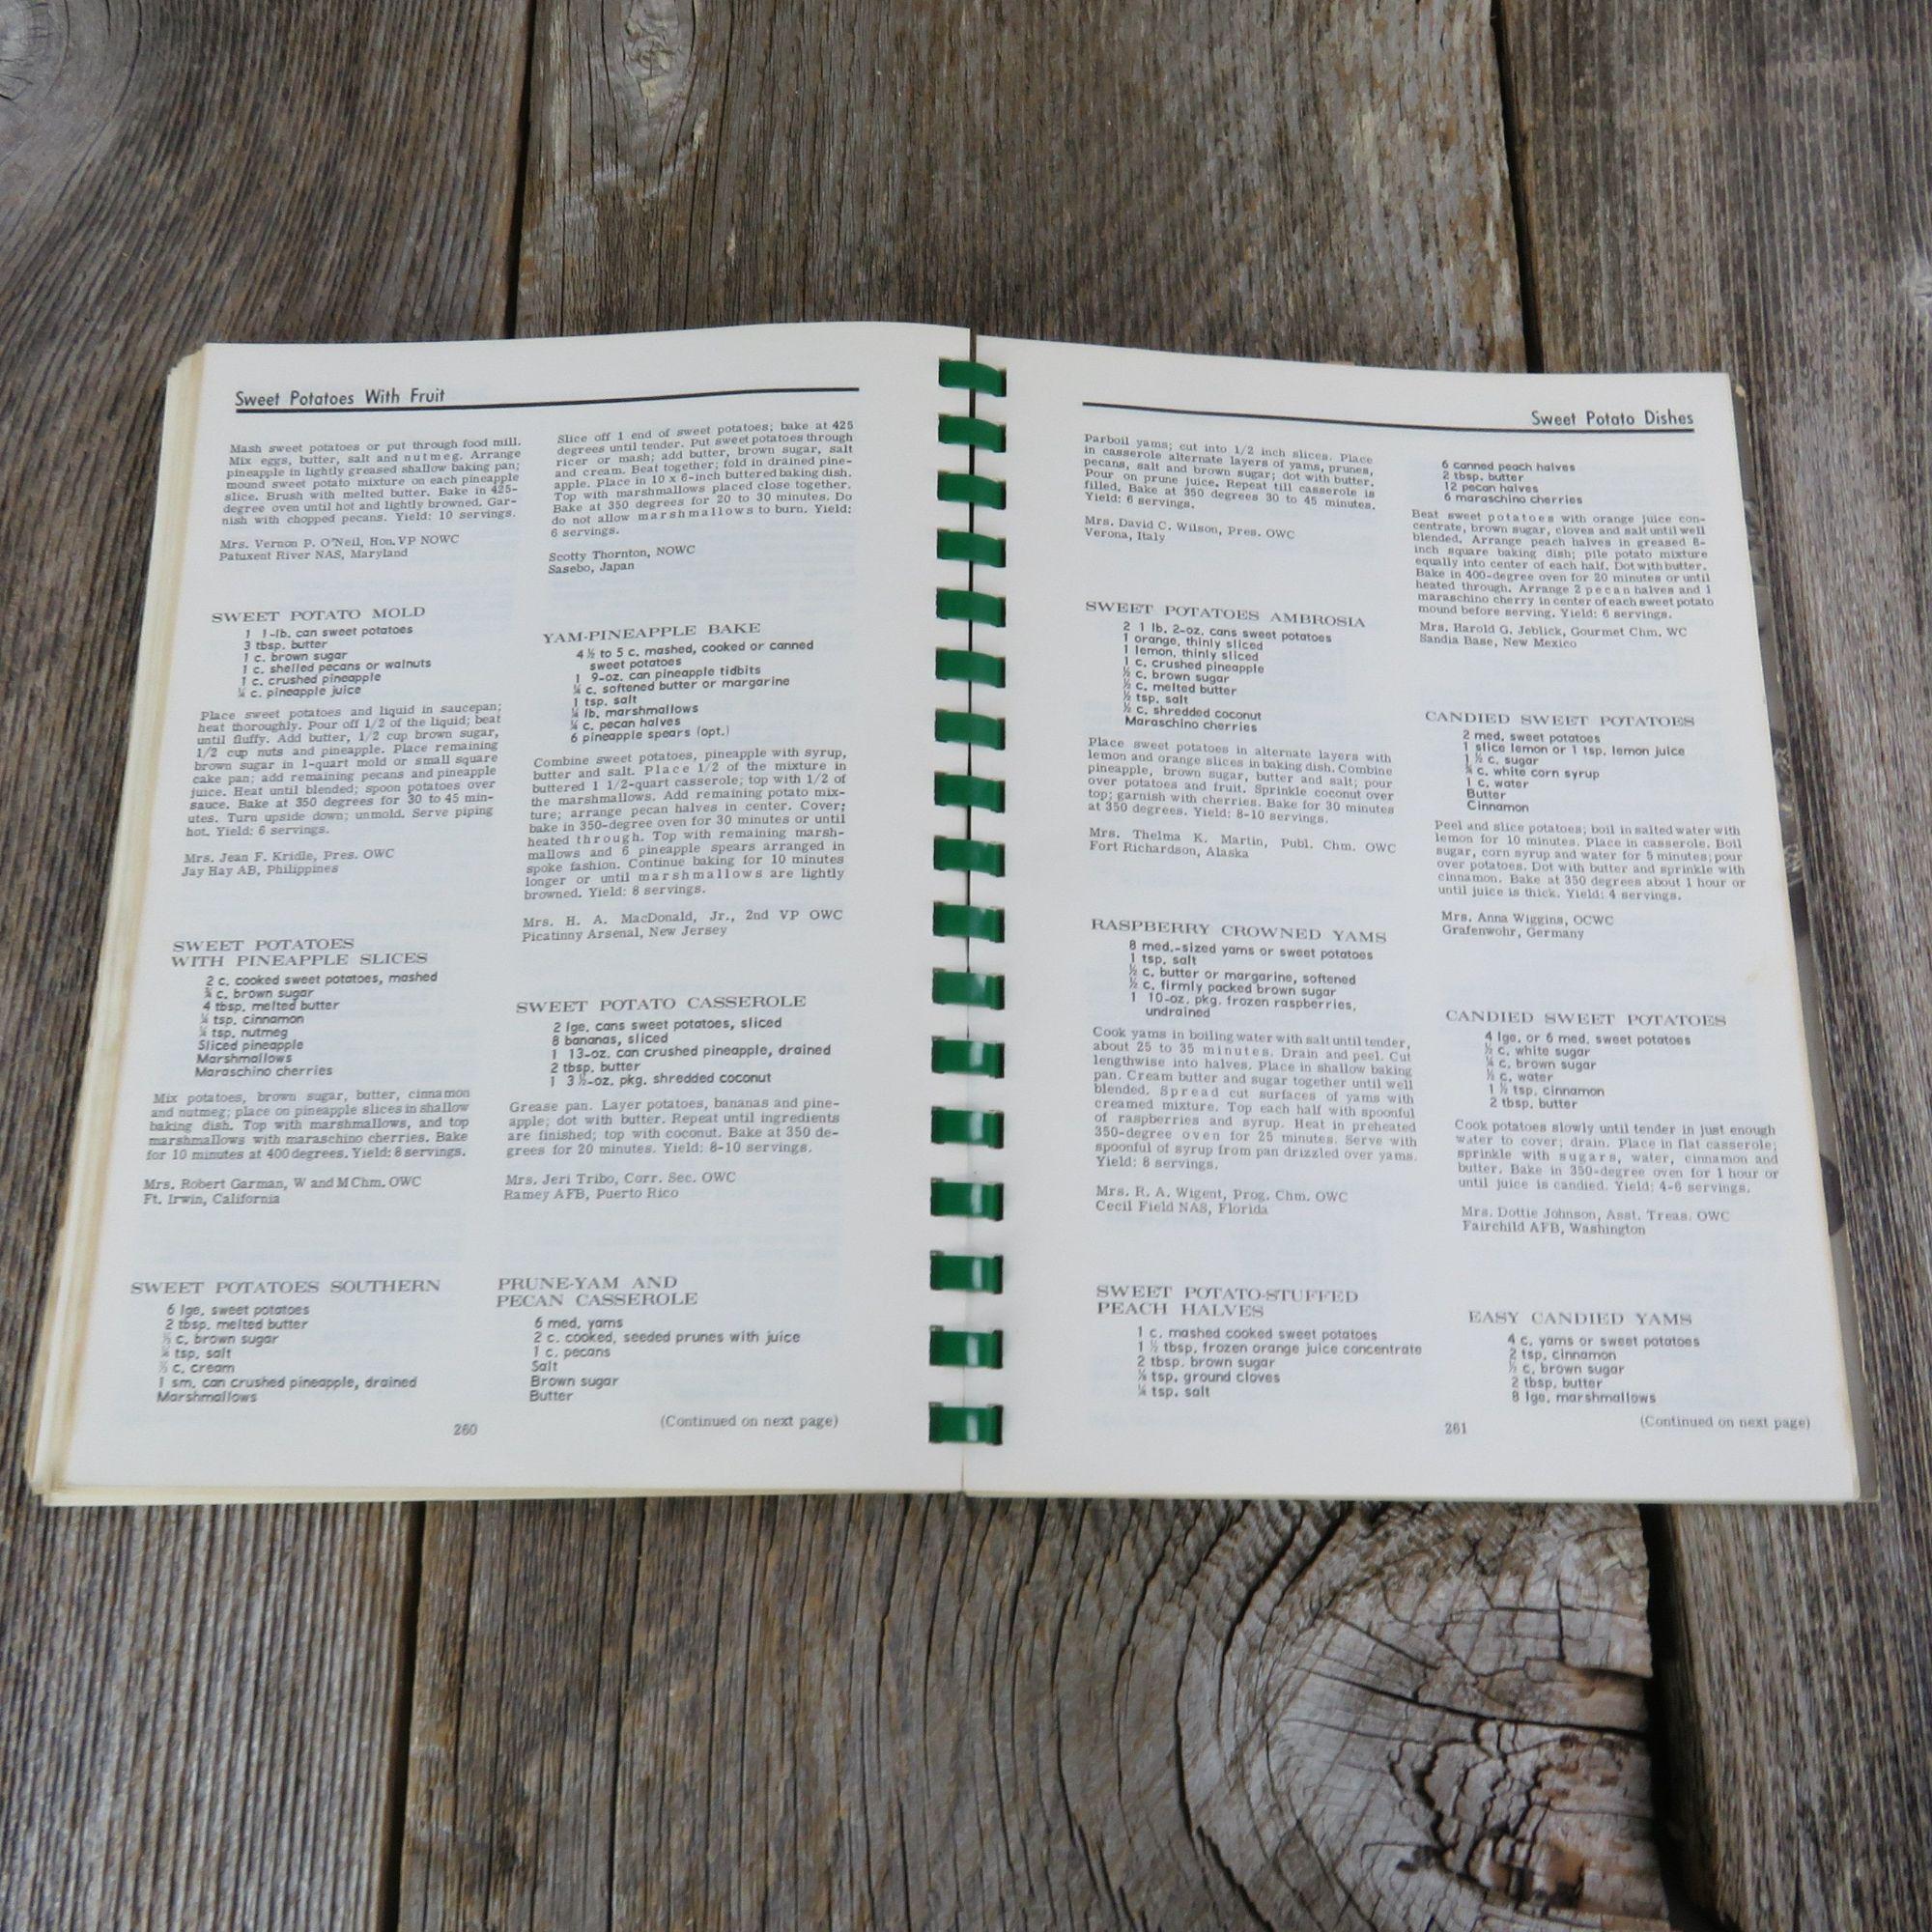 Sweet Potatoes With Fruit
Mash sweet potatoes or put through food mill.
Mix eggs, butter, salt and nutmeg. Arrange
pineapple in lightly greased shallow baking pan;
mound sweet potato mixture on each pineapple
slice. Brush with melted butter. Bake in 425-
degree oven until hot and lightly browned. Gar-
nish with chopped pecans. Yield: 10 servings.
Mrs. Vernon P. O'Neil, Hon. VP NOWC
Patuxent River NAS, Maryland
SWEET POTATO MOLD
1 1-lb. can sweet potatoes
3 tbsp. butter
1 c. brown sugar
1 c. shelled pecans or walnuts
1 c. crushed pineapple
¼ c. pineapple juice
Place sweet potatoes and liquid in saucepan;
heat thoroughly. Pour off 1/2 of the liquid; beat
until fluffy. Add butter, 1/2 cup brown sugar,
1/2 cup nuts and pineapple. Place remaining
brown sugar in 1-quart mold or small square
cake pan; add remaining pecans and pineapple
juice. Heat until blended; spoon potatoes over
sauce. Bake at 350 degrees for 30 to 45 min-
utes. Turn upside down; unmold. Serve piping
hot. Yield: 6 servings.
Mrs. Jean F. Kridle, Pres. OWC
Jay Hay AB, Philippines
SWEET POTATOES
WITH PINEAPPLE SLICES
2 c. cooked sweet potatoes, mashed
c. brown sugar
4 tbsp. melted butter
¼ tsp. cinnamon
¼ tsp. nutmeg
Sliced pineapple
Marshmallows
Maraschino cherries
Mix potatoes, brown sugar, butter, cinnamon
and nutmeg; place on pineapple slices in shallow
baking dish. Top with marshmallows, and top
marshmallows with maraschino cherries. Bake
for 10 minutes at 400 degrees. Yield: 8 servings.
Mrs. Robert Garman, W and M Chm. OWC
Ft. Irwin, California
SWEET POTATOES SOUTHERN
6 lge. sweet potatoes
2 tbsp. melted butter
c. brown sugar
tsp. salt
c. cream
1 sm. can crushed pineapple, drained
Marshmallows
Slice off 1 end of sweet potatoes; bake at 425
degrees until tender. Put sweet potatoes through
ricer or mash; add butter, brown sugar, salt
and cream. Beat together; fold in drained pine-
apple. Place in 10 x 6-inch buttered baking dish.
Top with marshmallows placed close together.
Bake at 350 degrees for 20 to 30 minutes. Do
not allow marshmallows to burn. Yield:
6 servings.
Scotty Thornton, NOWC
Sasebo, Japan
YAM-PINEAPPLE BAKE
4 ½ to 5 c. mashed, cooked or canned
sweet potatoes
1 9-oz. can pineapple tidbits
¼ c. softened butter or margarine
1 tsp. salt
¼ lb. marshmallows
¼ c. pecan halves
6 pineapple spears (opt.)
Combine sweet potatoes, pineapple with syrup,
butter and salt. Place 1/2 of the mixture in
buttered 1 1/2-quart casserole; top with 1/2 of
the marshmallows. Add remaining potato mix-
ture; arrange pecan halves in center. Cover;
bake in 350-degree oven for 30 minutes or until
heated through. Top with remaining marsh-
mallows and 6 pineapple spears arranged in
spoke fashion. Continue baking for 10 minutes
longer or until marshmallows are lightly
browned. Yield: 8 servings.
Mrs. H. A. MacDonald, Jr., 2nd VP OWC
Picatinny Arsenal, New Jersey
SWEET POTATO CASSEROLE
2 lge. cans sweet potatoes, sliced
8 bananas, sliced
1 13-oz. can crushed pineapple, drained
2 tbsp. butter
1 3 ½-oz. pkg. shredded coconut
Grease pan. Layer potatoes, bananas and pine-
apple; dot with butter. Repeat until ingredients
are finished; top with coconut. Bake at 350 de-
grees for 20 minutes. Yield: 8-10 servings.
Mrs. Jeri Tribo, Corr. Sec. OWC
Ramey AFB, Puerto Rico
PRUNE-YAM AND
PECAN CASSEROLE
6 med. yams
2 c. cooked, seeded prunes with juice
1 c. pecans
Salt
Brown sugar
Butter
(Continued on next page)
260
Sweet Potato Dishes
Parboil yams; cut into 1/2 inch slices. Place
in casserole alternate layers of yams, prunes,
pecans, salt and brown sugar; dot with butter.
Pour on prune juice. Repeat till casserole is
filled. Bake at 350 degrees 30 to 45 minutes.
Yield: 6 servings.
Mrs. David C. Wilson, Pres. OWC
Verona, Italy
SWEET POTATOES AMBROSIA
2 1 lb. 2-oz. cans sweet potatoes
1 orange, thinly sliced
1 lemon, thinly sliced
1 c. crushed pineapple
½ c. brown sugar
½ c. melted butter
½ tsp. salt
½ c. shredded coconut
Maraschino cherries
Place sweet potatoes in alternate layers with
lemon and orange slices in baking dish. Combine
pineapple, brown sugar, butter and salt; pour
over potatoes and fruit. Sprinkle coconut over
top; garnish with cherries. Bake for 30 minutes
at 350 degrees. Yield: 8-10 servings.
Mrs. Thelma K. Martin, Publ. Chm. OWC
Fort Richardson, Alaska
RASPBERRY CROWNED YAMS
8 med.-sized yams or sweet potatoes
1 tsp. salt
½ c. butter or margarine, softened
½ c. firmly packed brown sugar
1 10-oz. pkg. frozen raspberries,
undrained
Cook yams in boiling water with salt until tender,
about 25 to 35 minutes. Drain and peel. Cut
lengthwise into halves. Place in shallow baking
pan. Cream butter and sugar together until well
blended. Spread cut surfaces of yams with
creamed mixture. Top each half with spoonful
of raspberries and syrup. Heat in preheated
350-degree oven for 25 minutes. Serve with
spoonful of syrup from pan drizzled over yams.
Yield: 8 servings.
Mrs. R. A. Wigent, Prog. Chm. OWC
Cecil Field NAS, Florida
SWEET POTATO-STUFFED
PEACH HALVES
1 c. mashed cooked sweet potatoes
1 ½ tbsp. frozen orange juice concentrate
2 tbsp. brown sugar
tsp. ground cloves
¼ tsp. salt
6 canned peach halves
2 tbsp. butter
12 pecan halves
6 maraschino cherries
Beat sweet potatoes with orange juice con-
centrate, brown sugar, cloves and salt until well
blended. Arrange peach halves in greased 8-
inch square baking dish; pile potato mixture
equally into center of each half. Dot with butter.
Bake in 400-degree oven for 20 minutes or until
heated through. Arrange 2 pecan halves and 1
maraschino cherry in center of each sweet potato
mound before serving. Yield: 6 servings.
Mrs. Harold G. Jeblick, Gourmet Chm. WC
Sandia Base, New Mexico
CANDIED SWEET POTATOES
2 med. sweet potatoes
1 slice lemon or 1 tsp. lemon juice
1 ½ c. sugar
c. white corn syrup
1 c. water
Butter
Cinnamon
Peel and slice potatoes; boil in salted water with
lemon for 10 minutes. Place in casserole. Boil
sugar, corn syrup and water for 5 minutes; pour
over potatoes. Dot with butter and sprinkle with
cinnamon. Bake at 350 degrees about 1 hour or
until juice is thick. Yield: 4 servings.
Mrs. Anna Wiggins, OCWC
Grafenwohr, Germany
CANDIED SWEET POTATOES
4 lge. or 6 med. sweet potatoes
½ c. white sugar
c. brown sugar
½ c. water
1 ½ tsp. cinnamon
2 tbsp. butter
Cook potatoes slowly until tender in just enough
water to cover; drain. Place in flat casserole;
sprinkle with sugars, water, cinnamon and
butter. Bake in 350-degree oven for 1 hour or
until juice is candied. Yield: 4-6 servings.
Mrs. Dottie Johnson, Asst. Treas. OWC
Fairchild AFB, Washington
EASY CANDIED YAMS
4 c. yams or sweet potatoes
2 tsp. cinnamon
½ c. brown sugar
2 tbsp. butter
8 lge. marshmallows
(Continued on next page)
261